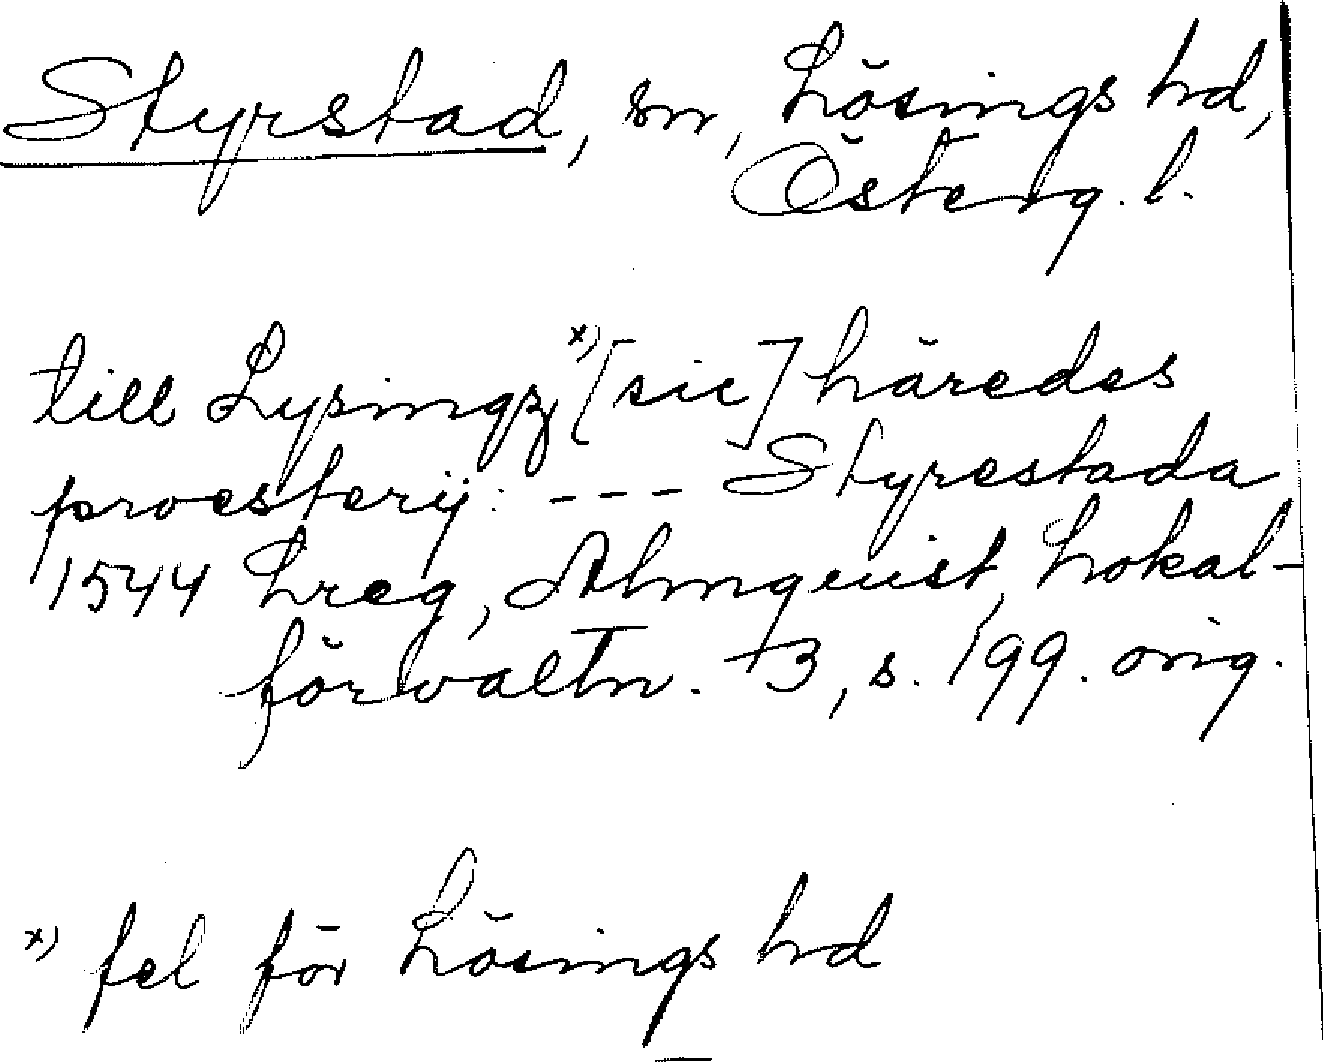 Styrstad, sn, Lösings hd,
Österg. l.
till Lysingz x) [sic] häredes
proesterij: --- Styrestada
1544 Lreg, Almquist, Lokal-
förvaltn. 3, s. 199. orig.
x) fel för Lösings hd